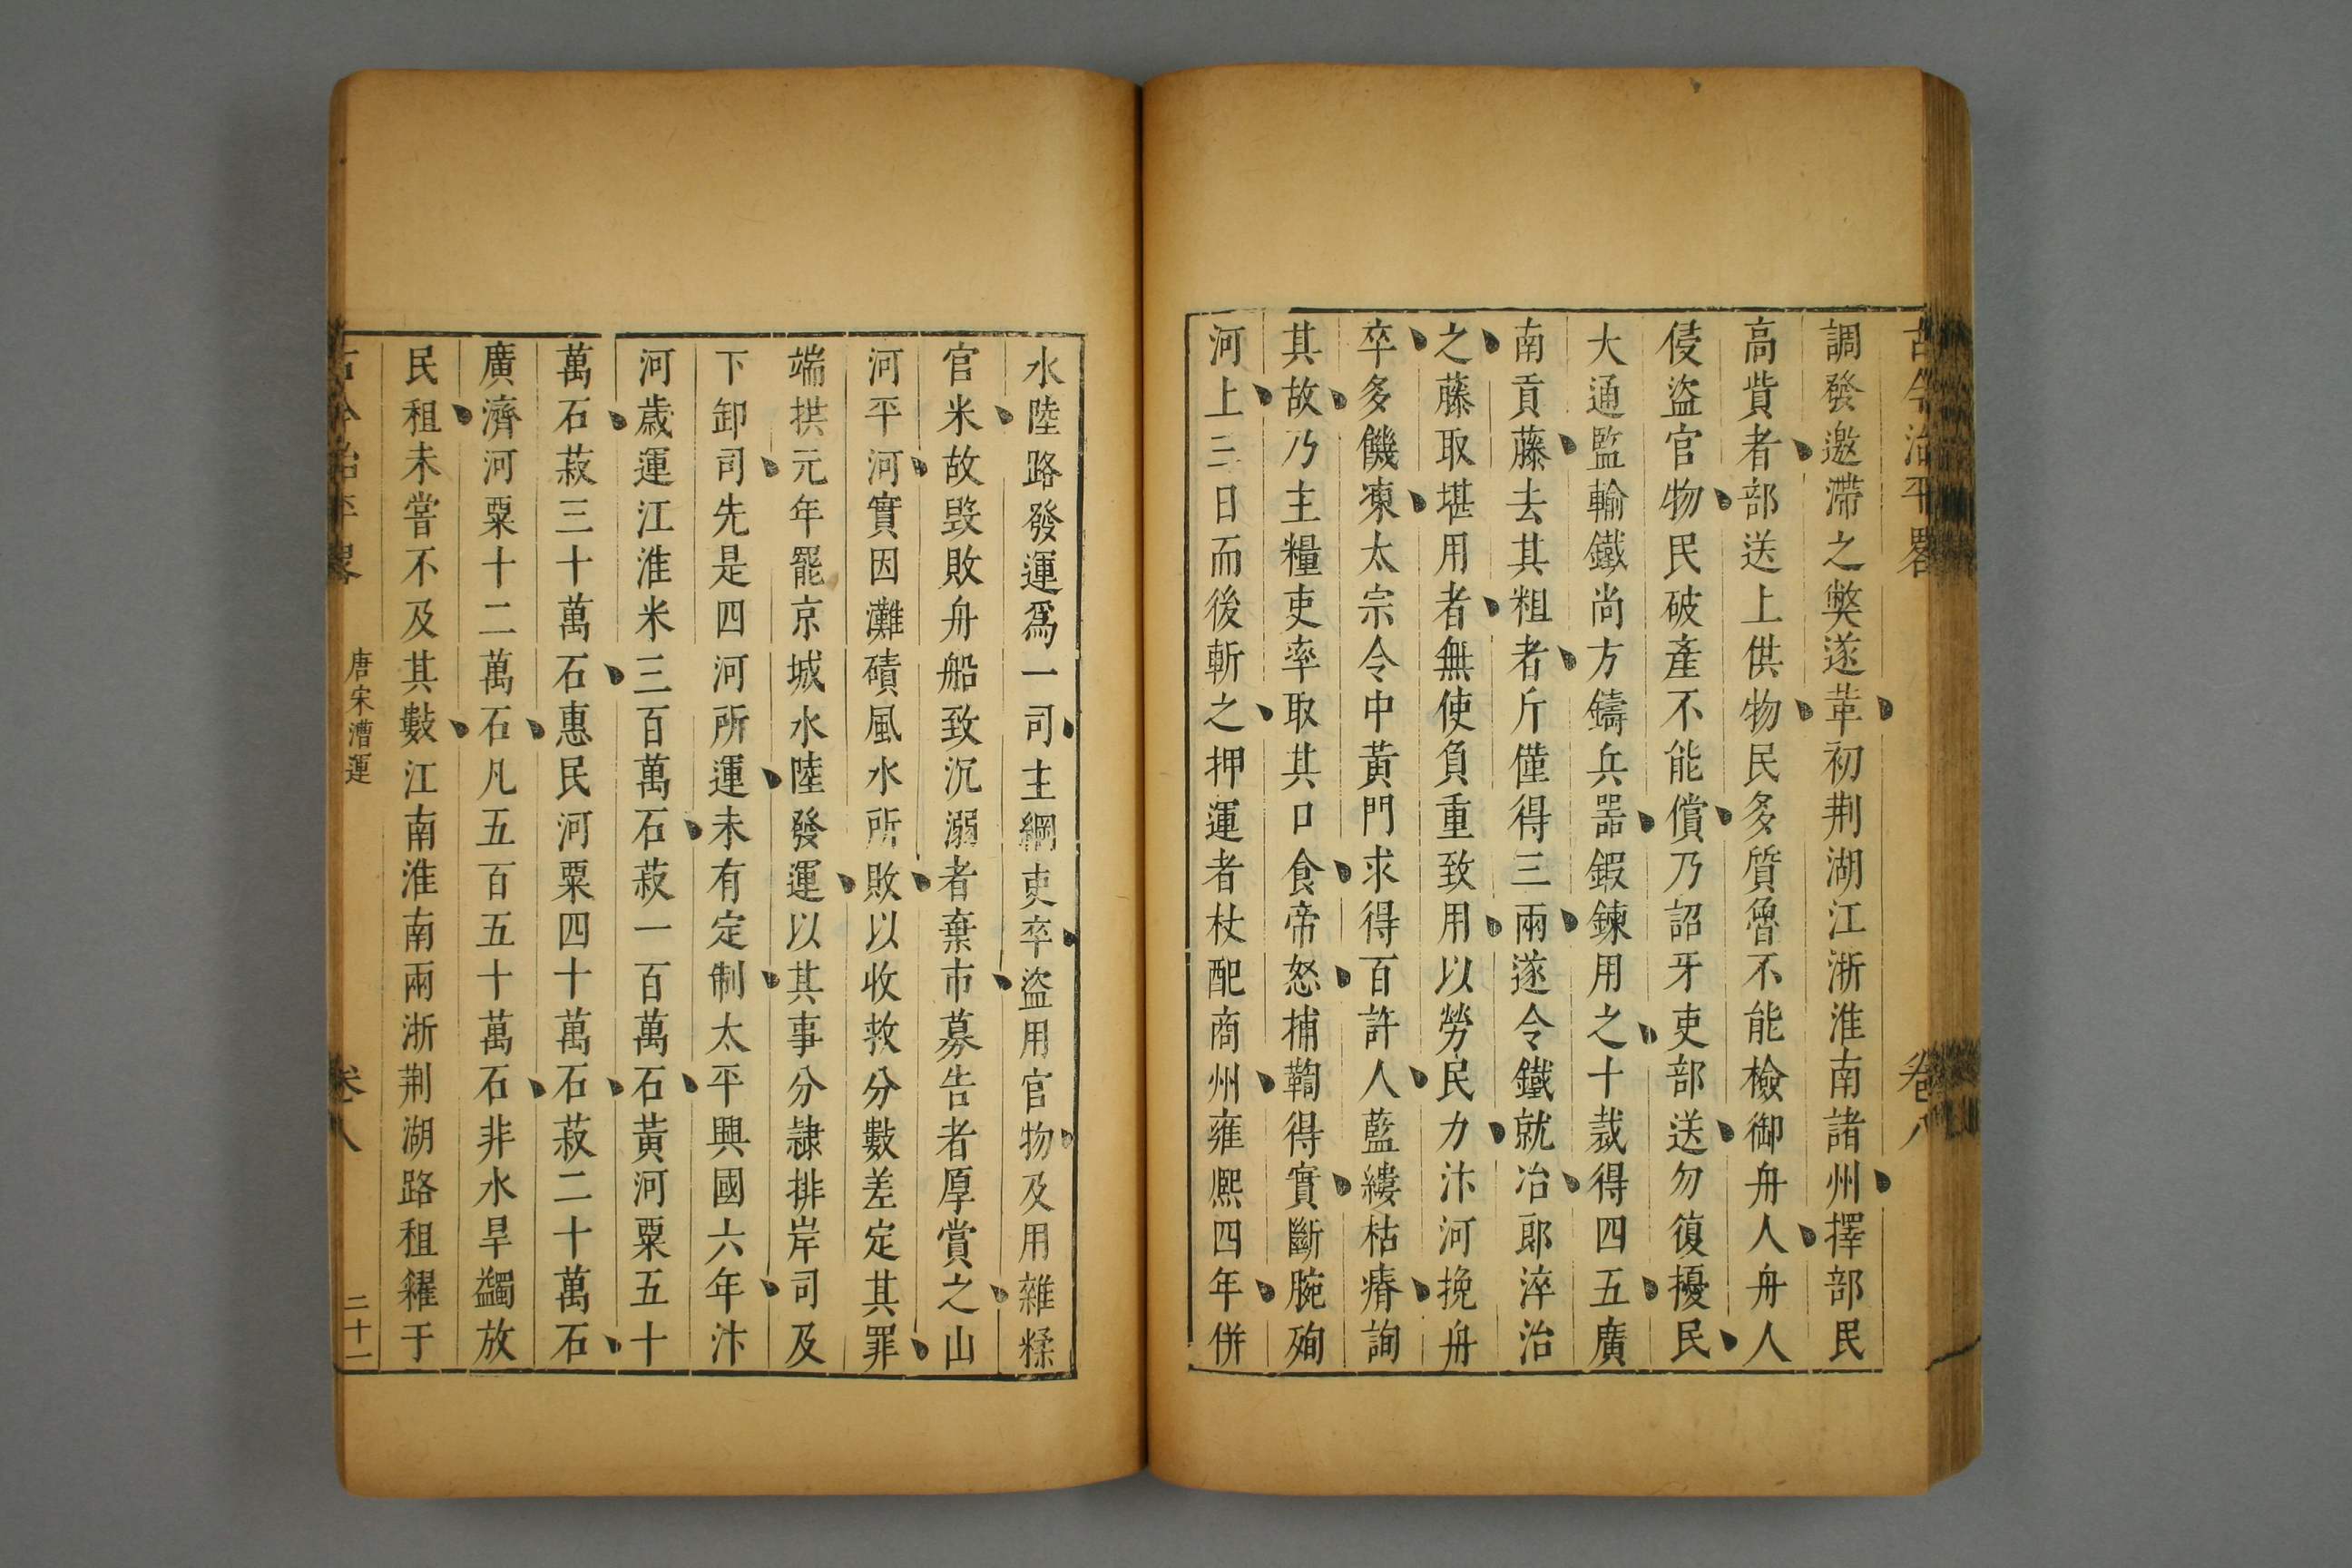 古今治平畧 卷八
調發邀滯之獘遂革初荆湖江浙淮南諸州擇部民
高貲者部送上供物民多質魯不能檢御舟人舟人
侵盜官物民破產不能償乃詔牙吏部送勿復擾民
大通監輸鐵尚方鑄兵器鍜鍊用之十裁得四五廣
南貢藤去其粗者斤僅得三兩遂令鐵就冶郎淬治
之藤取堪用者無使負重致用以勞民力汴河挽舟
卒多饑凍太宗令中黃門求得百許人藍縷枯瘠詢
其故乃主糧吏率取其口食帝怒捕鞫得實斷腕殉
河上三日而後斬之押運者杖配商州雍熙四年併
水陸路發運爲一司主綱吏卒盜用官物及用雜糅
官米故毀敗舟船致沉溺者棄市募告者厚賞之山
河平河實因灘磧風水所敗以收救分數差定其罪
端拱元年罷京城水陸發運以其事分隷排岸司及
下卸司先是四河所運未有定制太平興國六年汴
河歲運江淮米三百萬石菽一百萬石黃河粟五十
萬石菽三十萬石惠民河粟四十萬石菽二十萬石
廣濟河粟十二萬石凡五百五十萬石非水旱蠲放
民租未嘗不及其數江南淮南兩浙荆湖路租糴于
古今治平畧 唐宋漕運 卷八 二十一